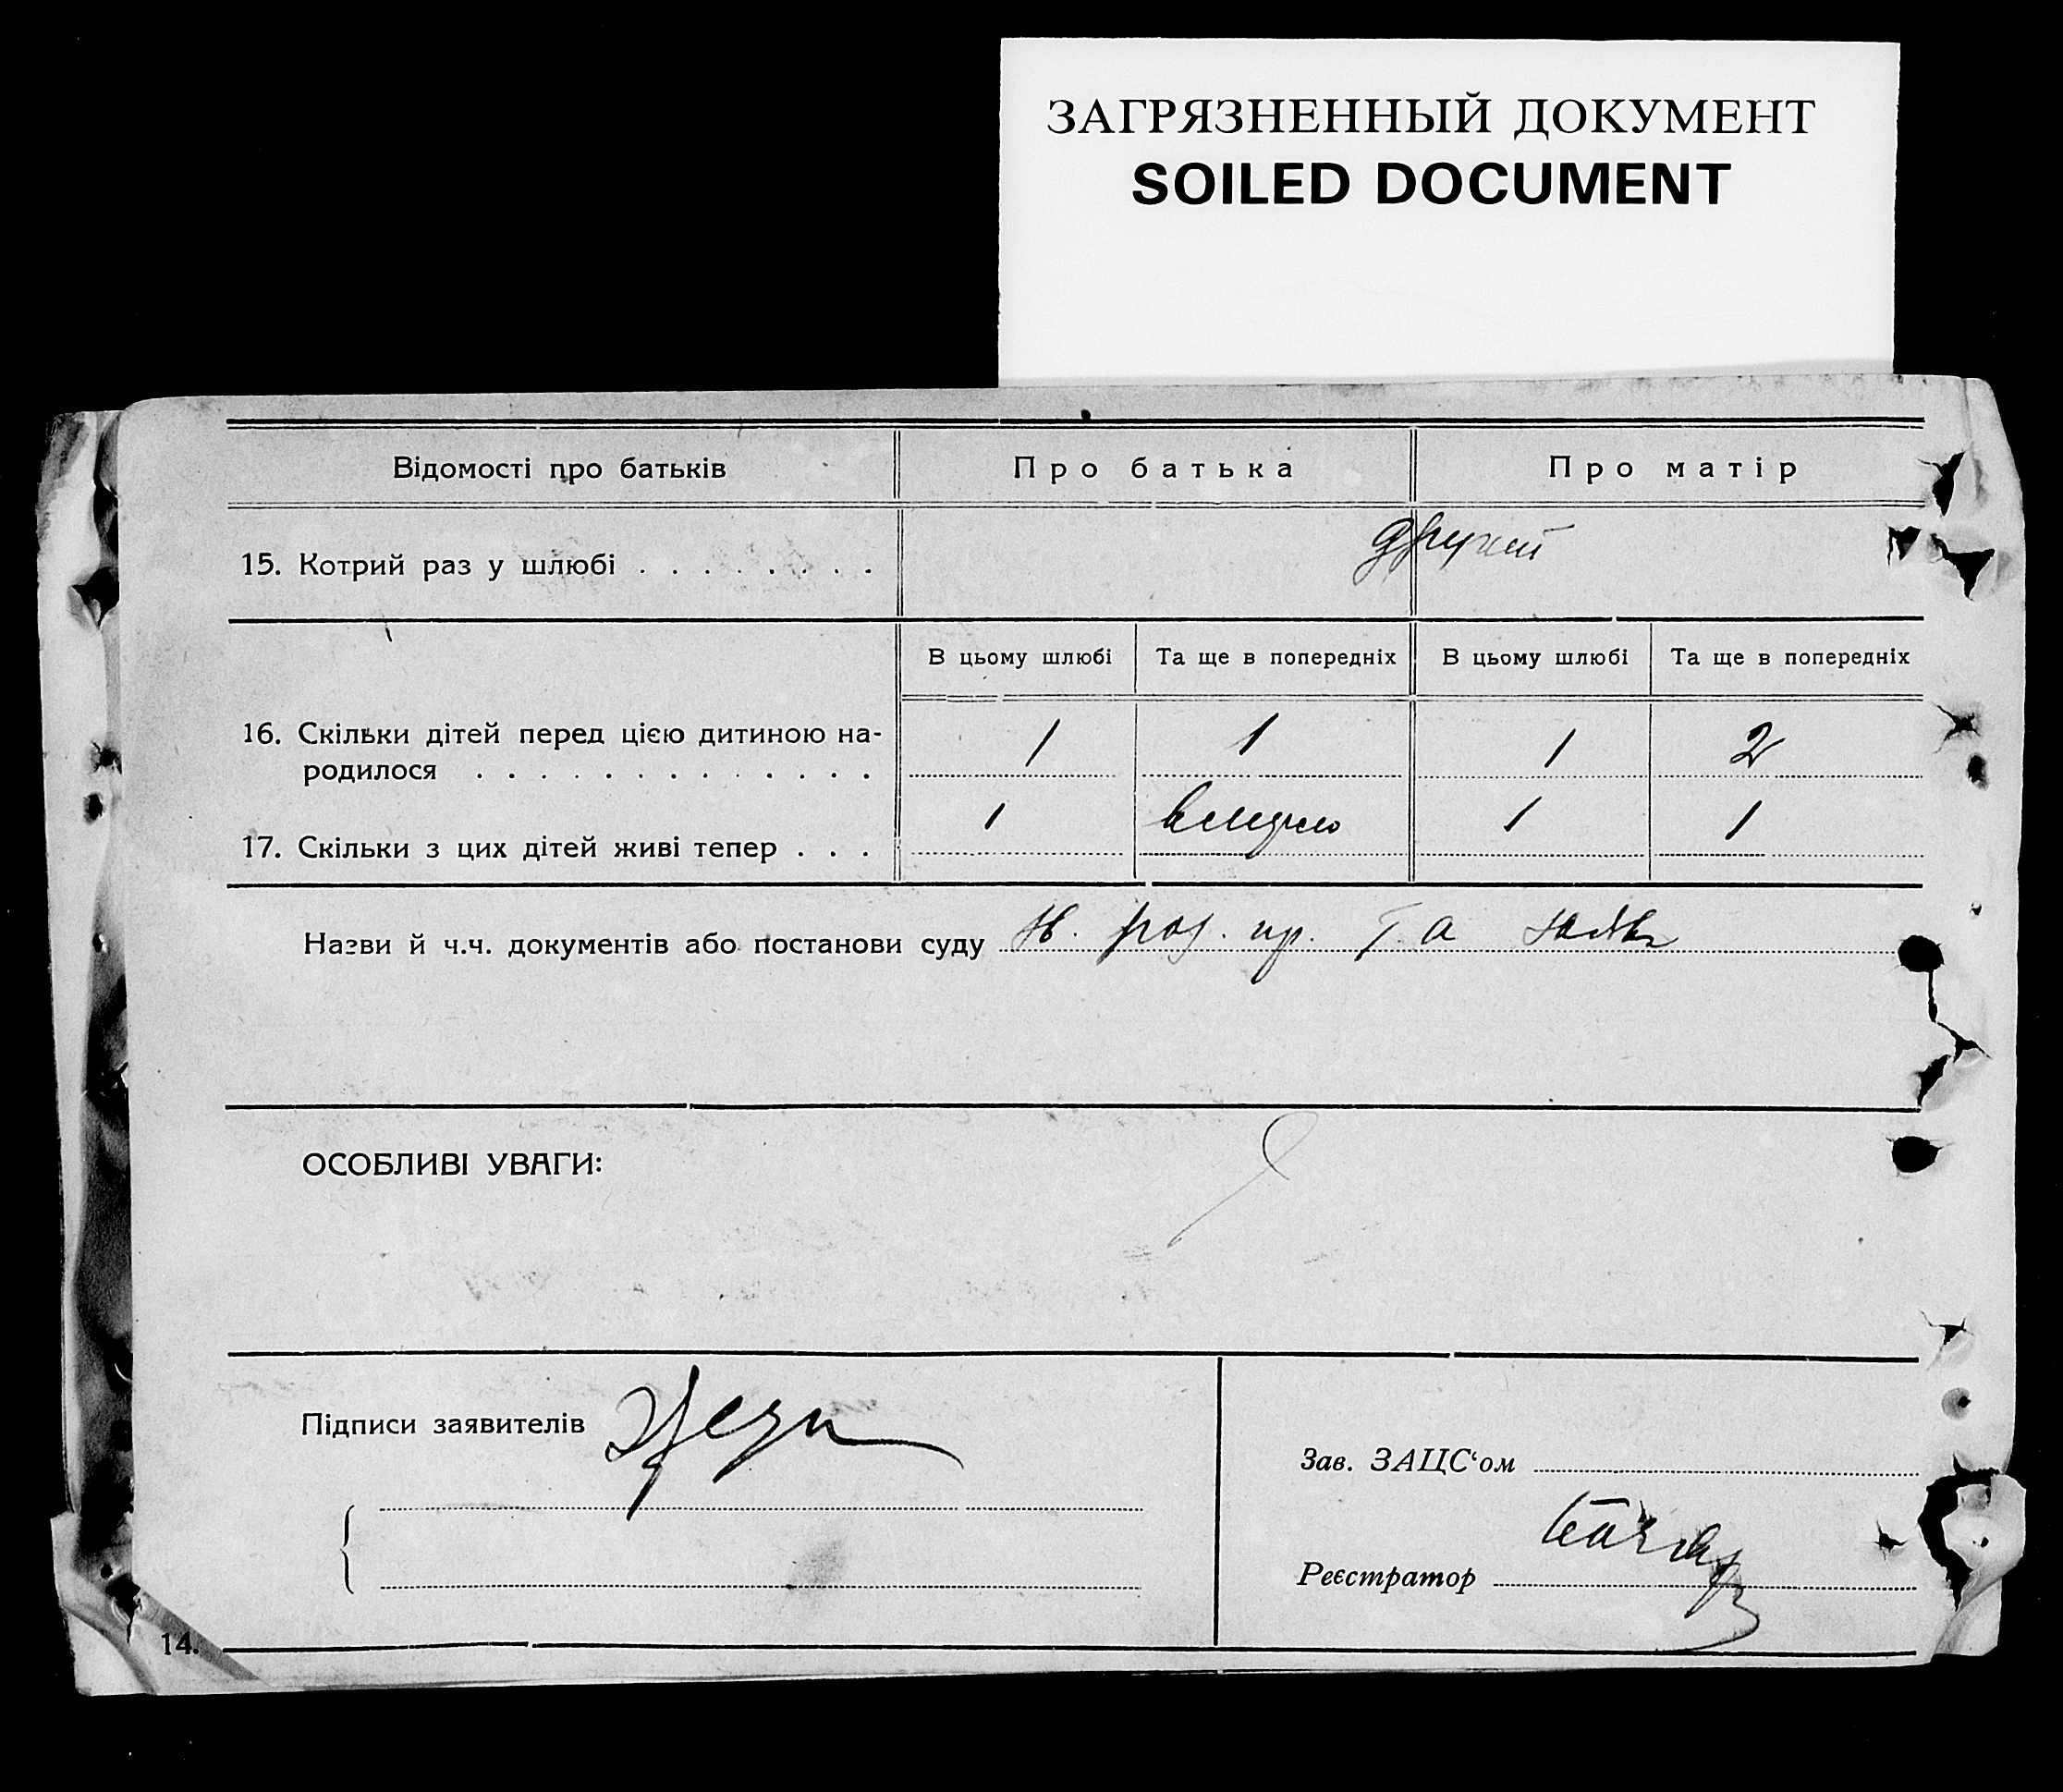 ЗАГРЯЗНЕННЫЙ ДОКУМЕНТ
SOILED DOCUMENT
Відомості про батьків Про батька Про матір
15. Котрий раз у шлюбі . . . . . . . . другий
В цьому шлюбі Та ще в попередніх В цьому шлюбі Та ще в попередніх
16. Скільки дітей перед цією дитиною на-
родилося . . . . . . . . . . . . . 1 1 1 2
17. Скільки з цих дітей живі тепер . . . 1 1 1
Назви й ч.ч. документів або постанови суду та
ОСОБЛИВІ УВАГИ:
Підписи заявителів
Зав. ЗАЦС‘ом
Реєстратор
14.